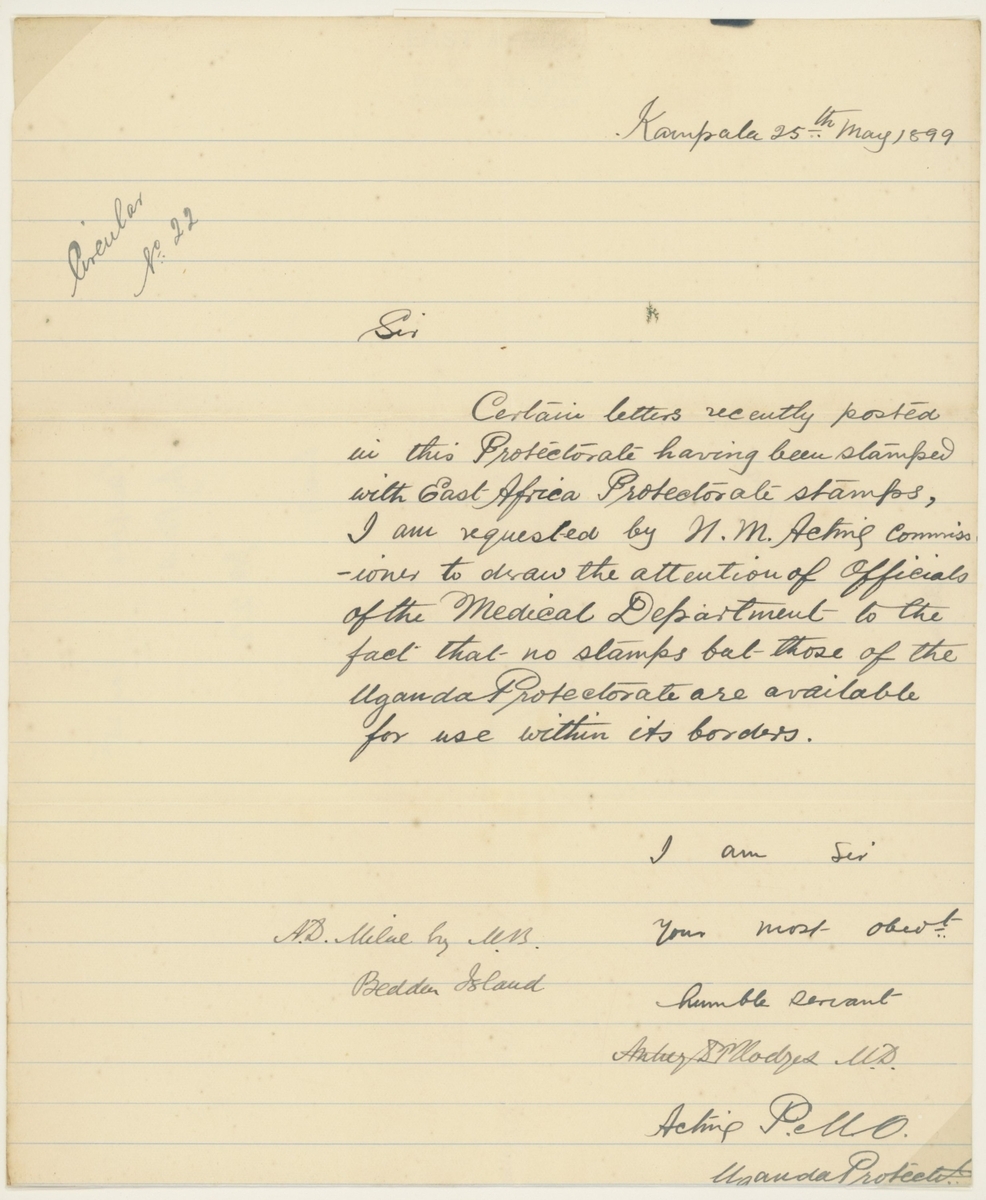 Kampala 25th May 1899
Circular
No. 22
Sir
Certain letters recently posted
in this Protectorate having been stamped
with East Africa Protectorate stamps,
I am requested by H. M. Acting Commiss
-ioner to draw the attention of Officials
of the Medical Department to the
fact that no stamps but those of the
Uganda Protectorate are available
for use within its borders.
I am Sir
Your most obedt
humble servant
A.D. Milne Esq M.B.
Bedden Island
Aubrey D P Hodges M.D.
Acting P.M.O.
Uganda Protectt.